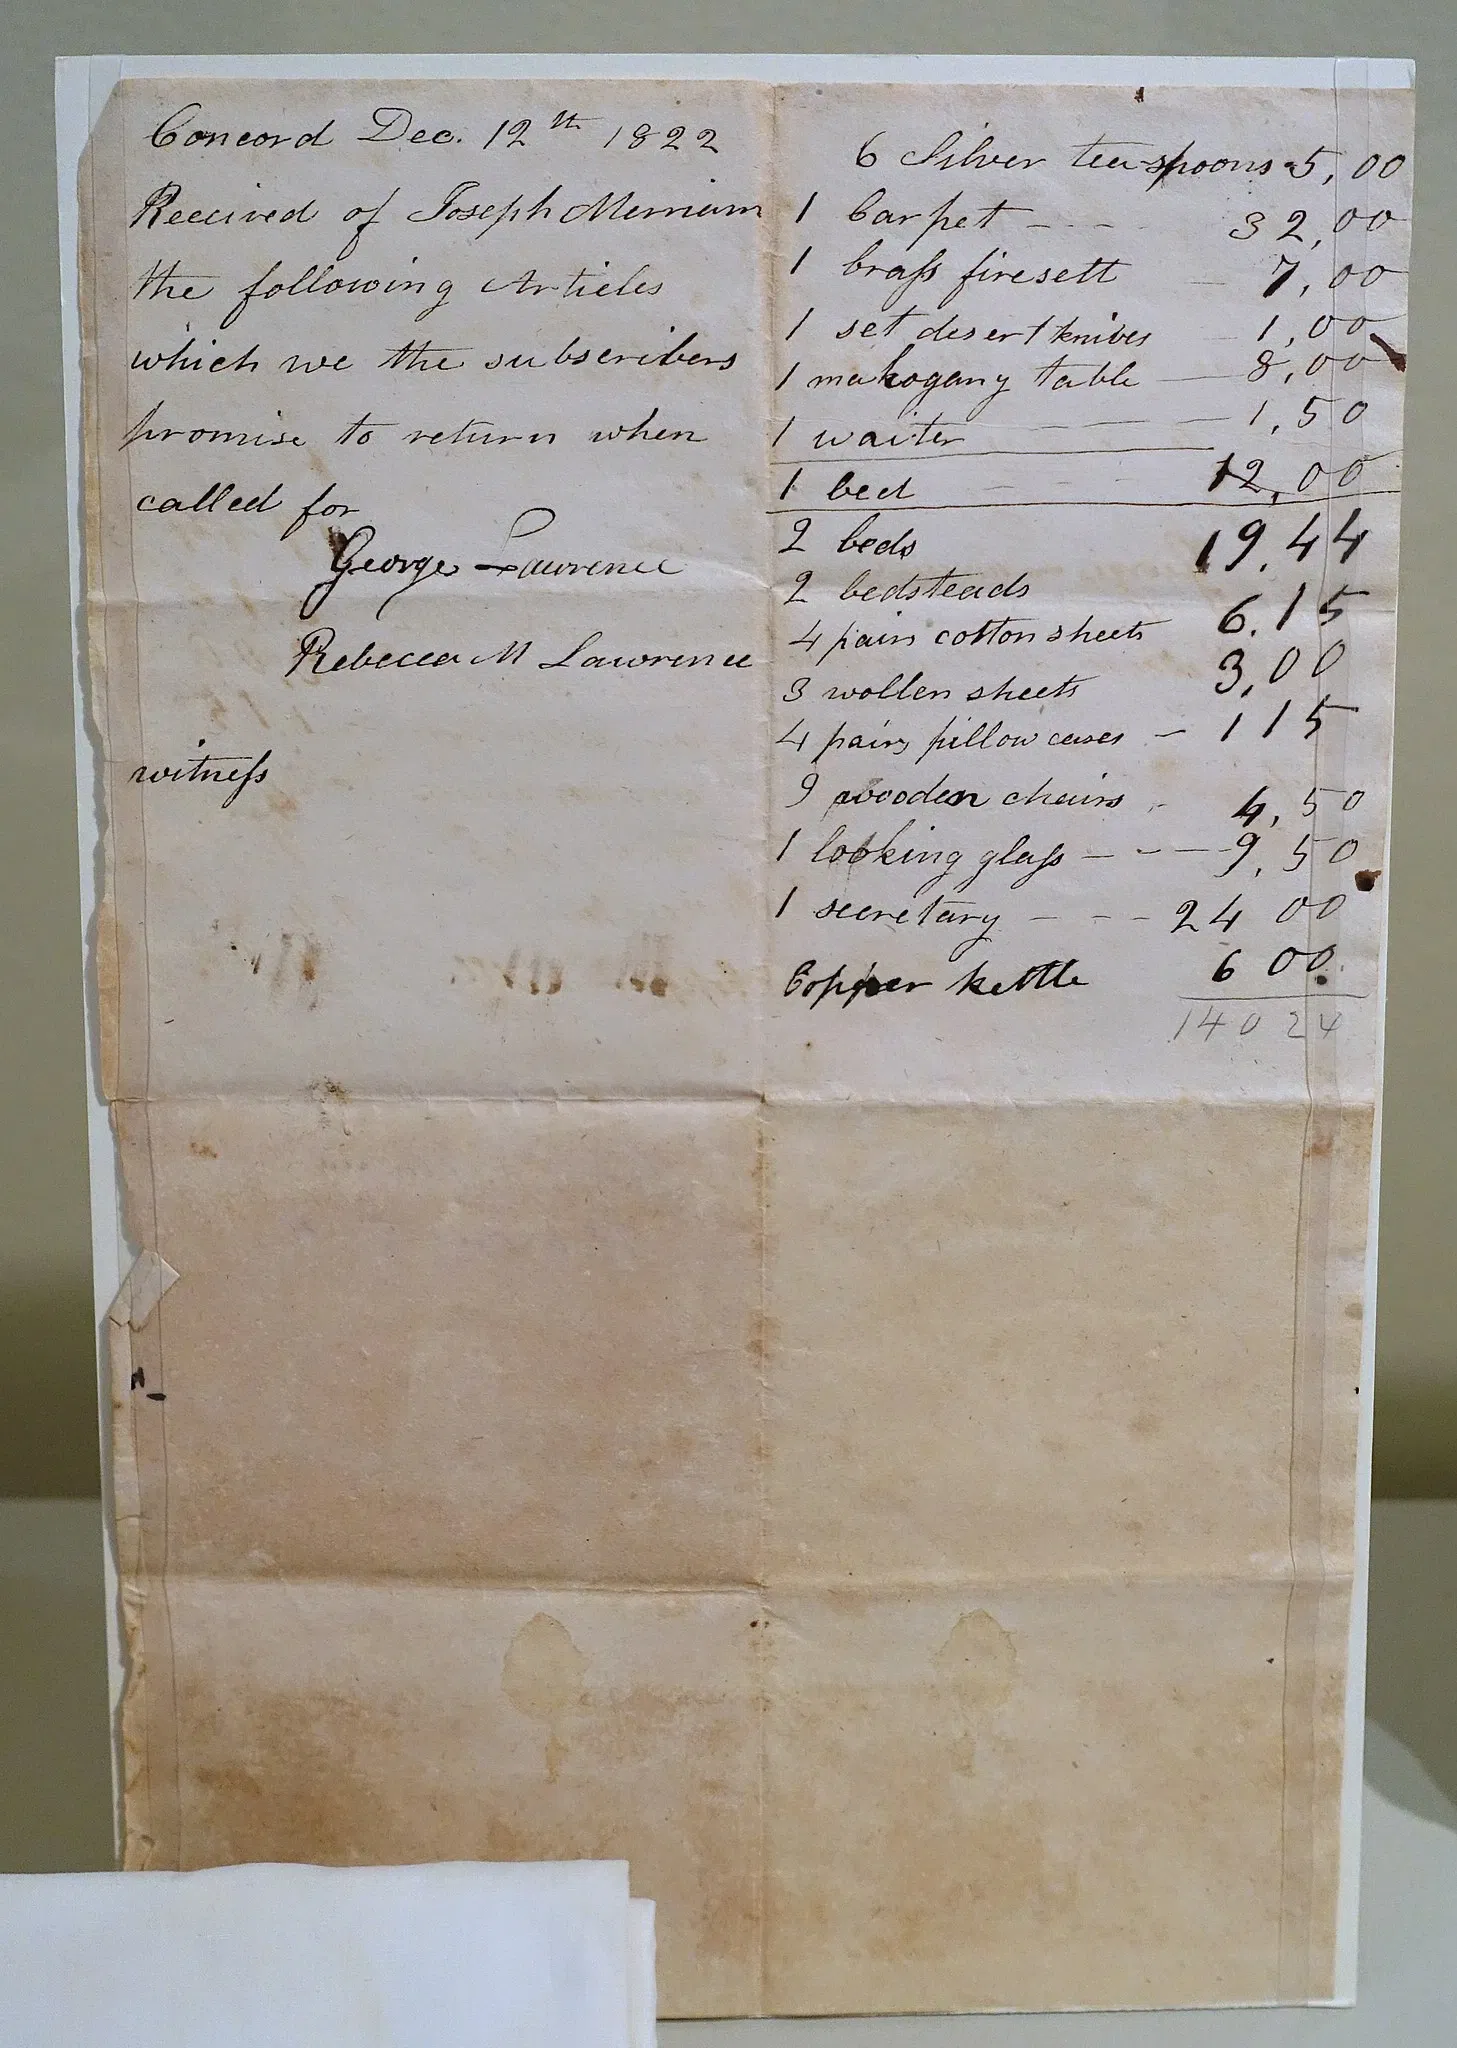 Concord Dec. 12th 1822
Received of Joseph Merriam
the following Articles
which we the subscribers
promise to return when
called for
George Lawrence
Rebecca M Lawrence
witneſs
6 Silver tea spoons - 5,00
1 Carpet - - - 32,00
1 braſs firesett - 7,00
1 set desert knives - 1,00
1 mahogany table - 8,00
1 waiter - - - 1,50
1 bed - - - 12,00
2 beds 19.44
2 bedsteads 6.15
4 pairs cotton sheets 3,00
3 wollen sheets
4 pairs pillow cases - 115
9 wooden chairs - 4,50
1 looking glaſs - - - 9,50
1 secretary - - - 24 00
Copper kettle 6 00
140 24